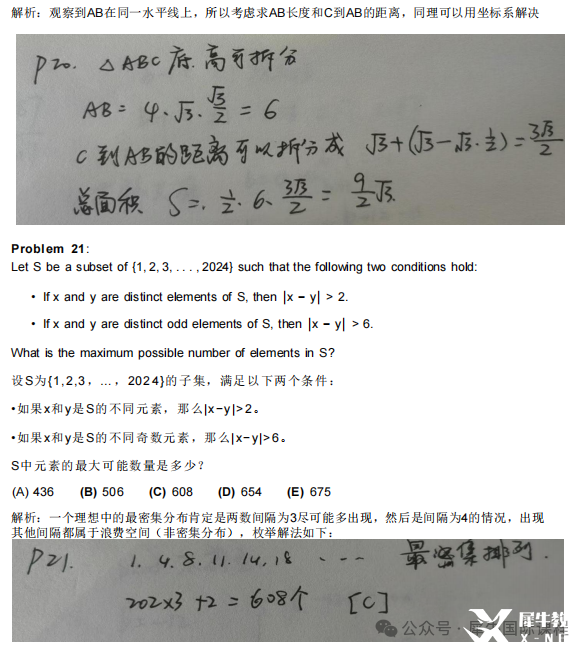 解析：观察到AB在同一水平线上，所以考虑求AB长度和C到AB的距离，同理可以用坐标系解决
P20. △ABC 底.高可拆分
AB = 4·√3·√3/2 = 6
C到AB的距离可以拆分成 √3+(√3-√3·1/2)=3√3/2
总面积 S=.1/2·6·3√3/2=9/2√3.
Problem 21:
Let S be a subset of {1, 2, 3, . . . , 2024} such that the following two conditions hold:
• If x and y are distinct elements of S, then |x − y| > 2.
• If x and y are distinct odd elements of S, then |x − y| > 6.
What is the maximum possible number of elements in S?
设S为{1,2,3，…，2024}的子集，满足以下两个条件：
•如果x和y是S的不同元素，那么|x−y|>2。
•如果x和y是S的不同奇数元素，那么|x−y|>6。
S中元素的最大可能数量是多少？
(A) 436 (B) 506 (C) 608 (D) 654 (E) 675
解析：一个理想中的最密集分布肯定是两数间隔为3尽可能多出现，然后是间隔为4的情况，出现
其他间隔都属于浪费空间（非密集分布），枚举解法如下：
P21. 1. 4. 8. 11. 14. 18 · · · 最密集排列.
202×3 +2 = 608个 [C]
公众号·犀牛国际课程
犀牛教
X-NE